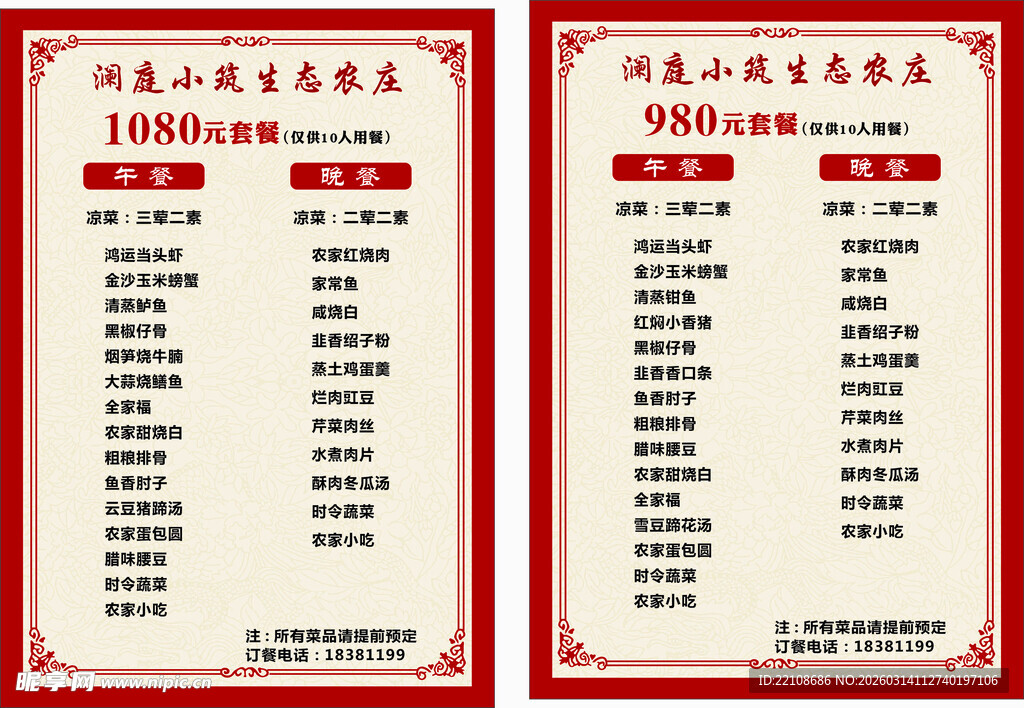 澜庭小筑生态农庄
1080元套餐(仅供10人用餐)
午餐
凉菜：三荤二素
鸿运当头虾
金沙玉米螃蟹
清蒸鲈鱼
黑椒仔骨
烟笋烧牛腩
大蒜烧鳝鱼
全家福
农家甜烧白
粗粮排骨
鱼香肘子
云豆猪蹄汤
农家蛋包圆
腊味腰豆
时令蔬菜
农家小吃
晚餐
凉菜：二荤二素
农家红烧肉
家常鱼
咸烧白
韭香绍子粉
蒸土鸡蛋羹
烂肉豇豆
芹菜肉丝
水煮肉片
酥肉冬瓜汤
时令蔬菜
农家小吃
注：所有菜品请提前预定
订餐电话：18381199
澜庭小筑生态农庄
980元套餐(仅供10人用餐)
午餐
凉菜：三荤二素
鸿运当头虾
金沙玉米螃蟹
清蒸钳鱼
红焖小香猪
黑椒仔骨
韭香香口条
鱼香肘子
粗粮排骨
腊味腰豆
农家甜烧白
全家福
雪豆蹄花汤
农家蛋包圆
时令蔬菜
农家小吃
晚餐
凉菜：二荤二素
农家红烧肉
家常鱼
咸烧白
韭香绍子粉
蒸土鸡蛋羹
烂肉豇豆
芹菜肉丝
水煮肉片
酥肉冬瓜汤
时令蔬菜
农家小吃
注：所有菜品请提前预定
订餐电话：18381199
昵享网 www.nipic.cn
ID:22108686 NO:20260314112740197106